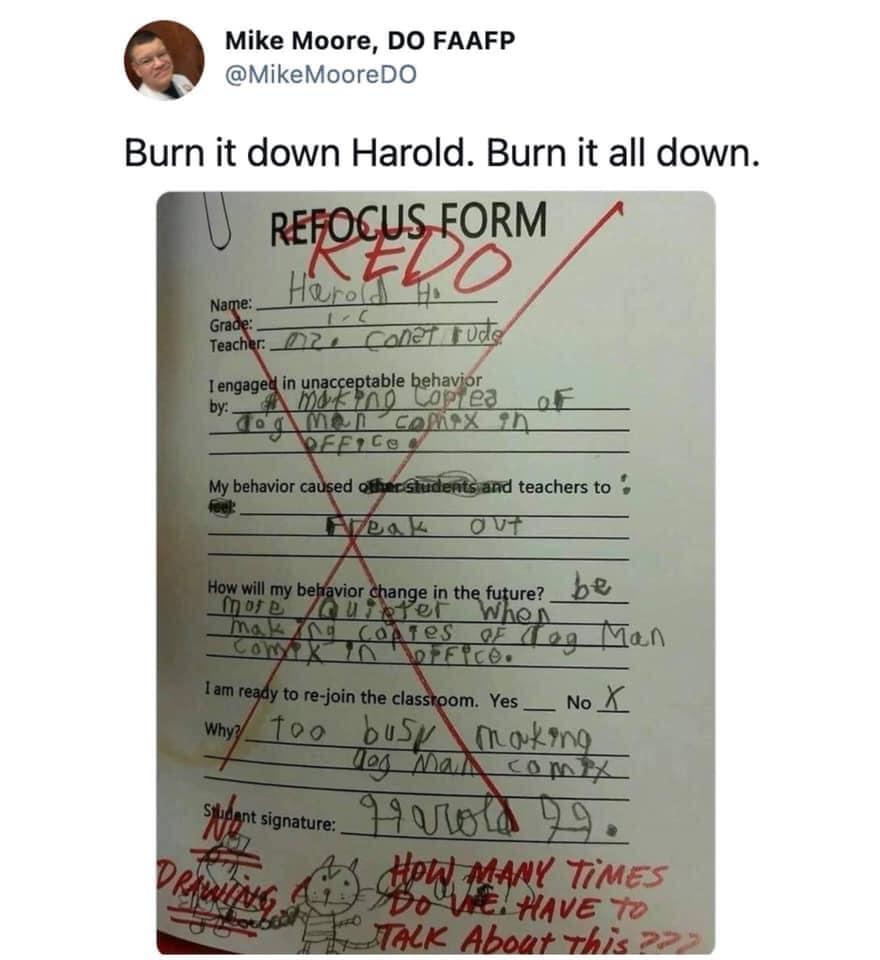 Mike Moore, DO FAAFP
@MikeMooreDO
Burn it down Harold. Burn it all down.
REFOCUS FORM
REDO
Name: Harold H.
Grade:
Teacher: mz. Const rude
I engaged in unacceptable behavior
by: making Copies of
dog man comix in
OFFice.
My behavior caused other students and teachers to :
feel:
Freak out
How will my behavior change in the future? be
more Quieter when
making copies of dog Man
comix in office.
I am ready to re-join the classroom. Yes ___ No X
Why? too busy making
dog Man comix
Student signature: Harold H.
No
DRAWING!
HOW MANY TiMES
Do WE HAVE To
TALK About This ???